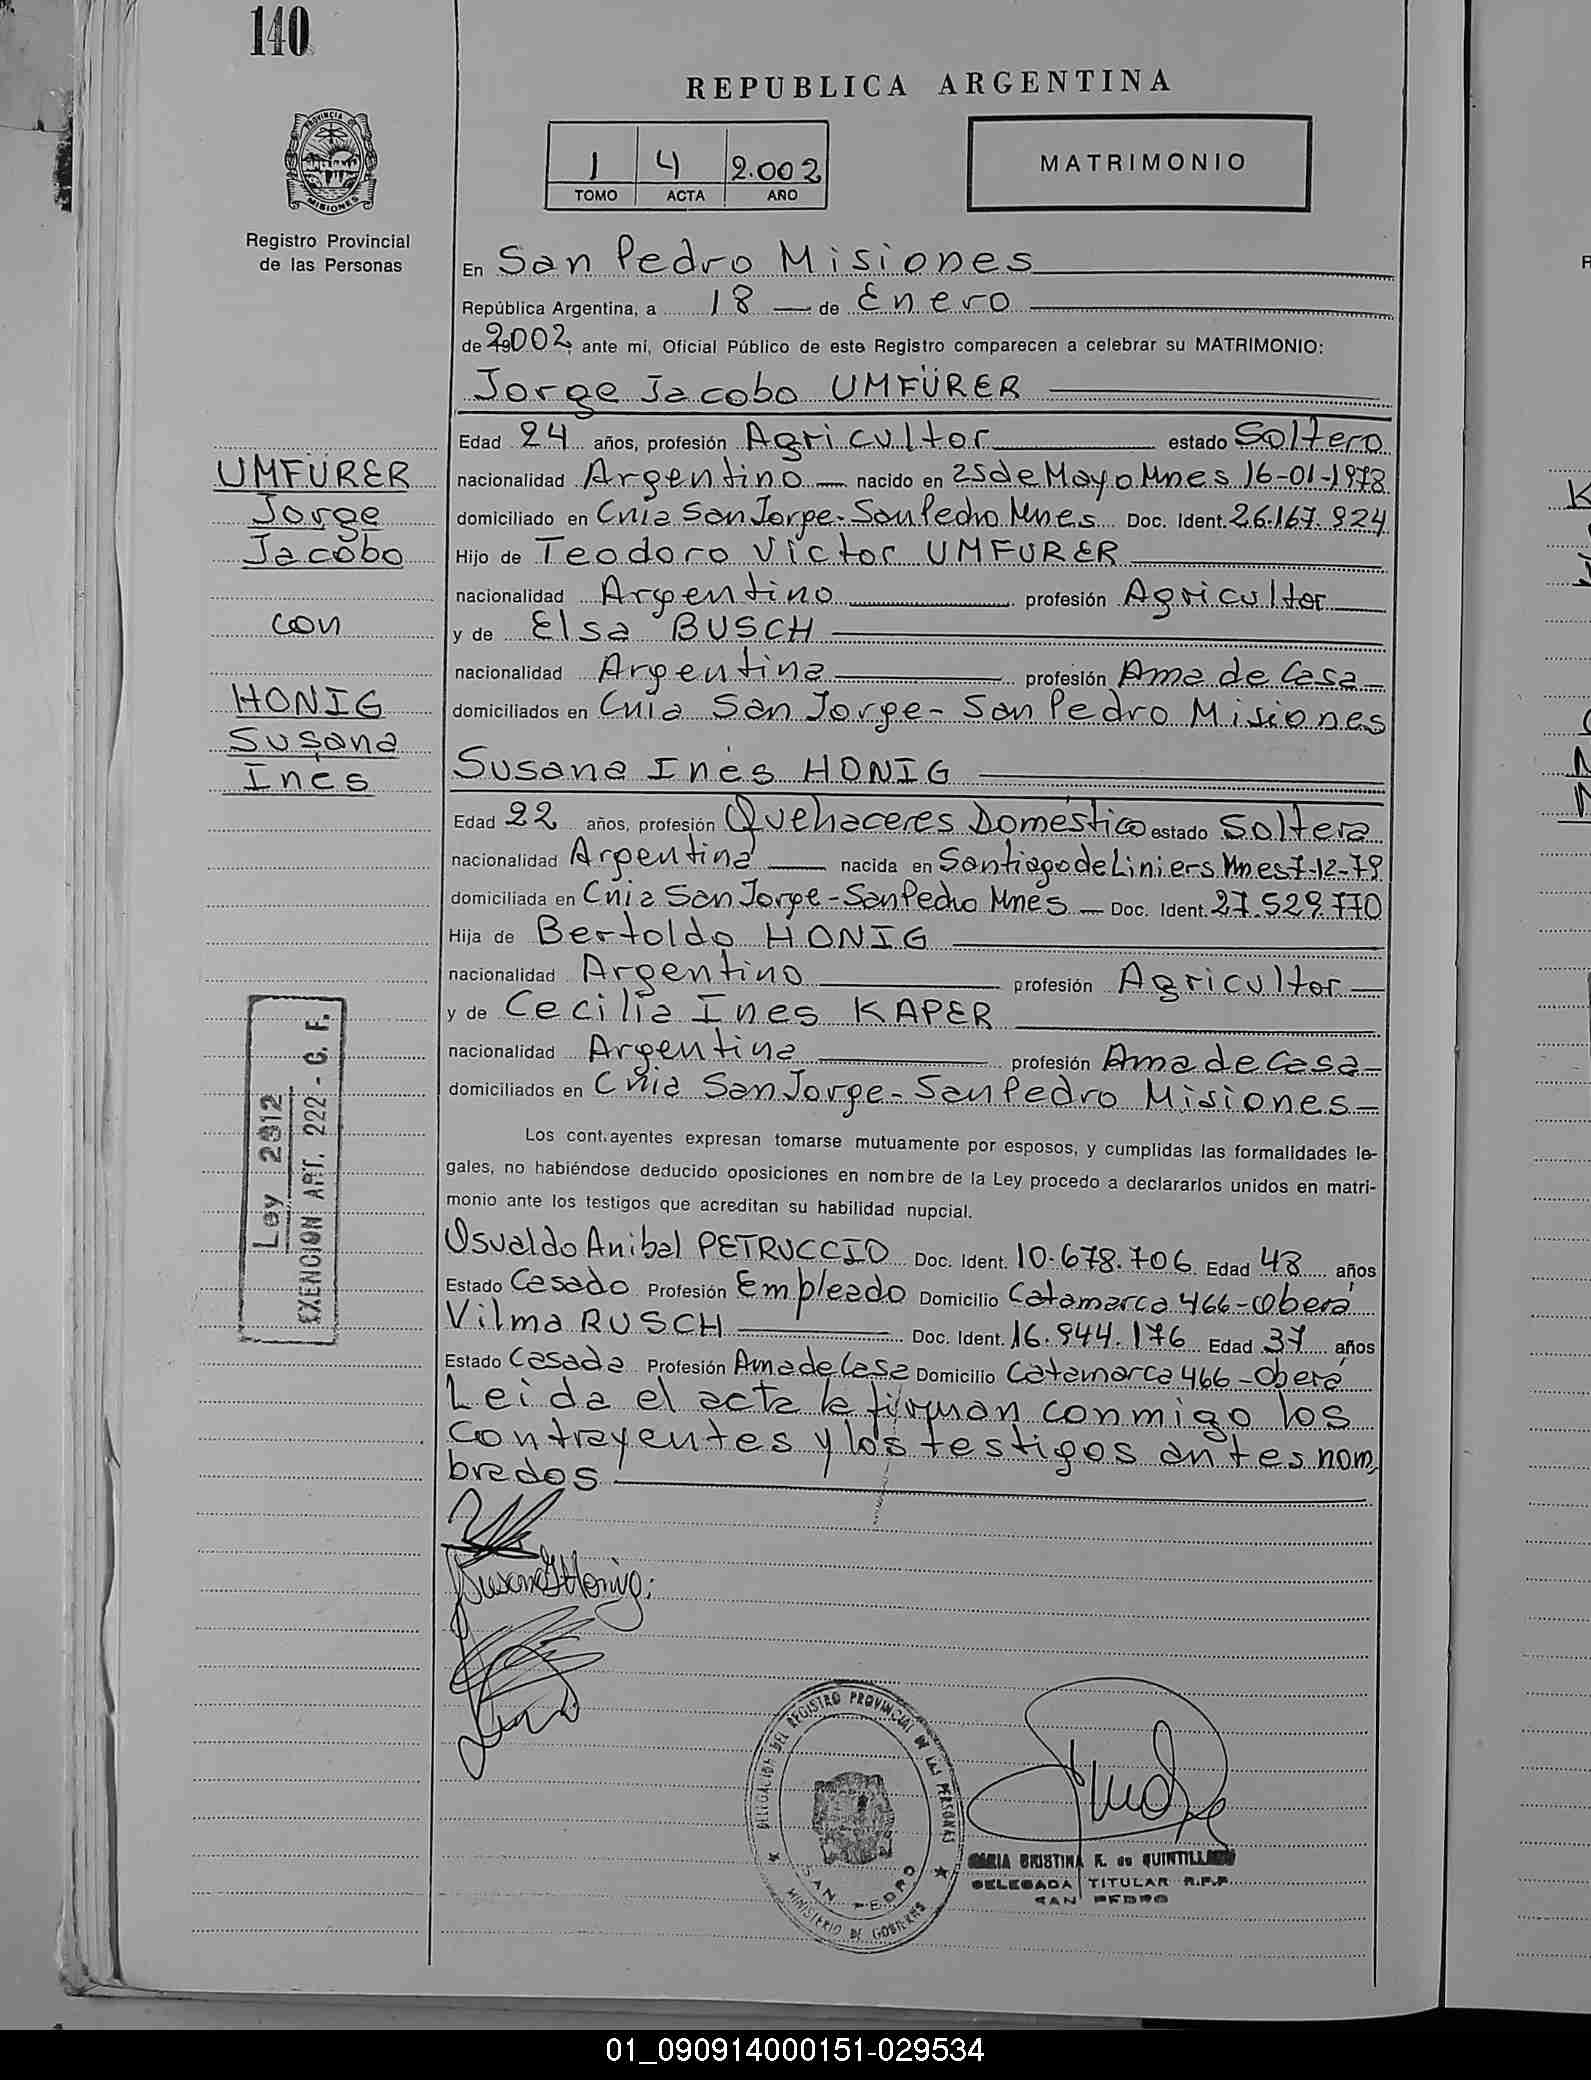 140
REPUBLICA ARGENTINA
PROVINCIA DE
MISIONES
Registro Provincial
de las Personas
1 4 2.002
TOMO ACTA AÑO
MATRIMONIO
En San Pedro Misiones
República Argentina, a 18 de Enero
de 2002, ante mí, Oficial Público de este Registro comparecen a celebrar su MATRIMONIO:
Jorge Jacobo UMFÜRER
Edad 24 años, profesión Agricultor estado Soltero
nacionalidad Argentino nacido en 25 de Mayo Mnes 16-01-1978
domiciliado en Cnia San Jorge-San Pedro Mnes Doc. Ident. 26.167.924
Hijo de Teodoro Victor UMFURER
nacionalidad Argentino profesión Agricultor
y de Elsa BUSCH
nacionalidad Argentina profesión Ama de Casa
domiciliados en Cnia San Jorge-San Pedro Misiones
UMFÜRER
Jorge
Jacobo
con
HONIG
Susana
Inés
Susana Inés HONIG
Edad 22 años, profesión Quehaceres Doméstico estado Soltera
nacionalidad Argentina nacida en Santiago de Liniers Mnes 7-12-79
domiciliada en Cnia San Jorge-San Pedro Mnes Doc. Ident. 27.529.770
Hija de Bertoldo HONIG
nacionalidad Argentino profesión Agricultor
y de Cecilia Ines KAPER
nacionalidad Argentina profesión Ama de Casa
domiciliados en Cnia San Jorge-San Pedro Misiones
Ley 2312
EXENCION ART. 222 - C. F.
Los contrayentes expresan tomarse mutuamente por esposos, y cumplidas las formalidades le-
gales, no habiéndose deducido oposiciones en nombre de la Ley procedo a declararlos unidos en matri-
monio ante los testigos que acreditan su habilidad nupcial.
Osvaldo Anibal PETRUCCIO Doc. Ident. 10.678.706 Edad 48 años
Estado Casado Profesión Empleado Domicilio Catamarca 466-Oberá
Vilma RUSCH Doc. Ident. 16.944.176 Edad 37 años
Estado Casada Profesión Ama de Casa Domicilio Catamarca 466-Oberá
Leida el acta la firman conmigo los
contrayentes y los testigos antes nom
brados
Susana I Honig
DELEGACION DEL REGISTRO PROVINCIAL DE LAS PERSONAS
SAN PEDRO
MINISTERIO DE GOBIERNO
MARIA CRISTINA K. de QUINTILLANO
DELEGADA TITULAR R.P.P.
SAN PEDRO
01_090914000151-029534